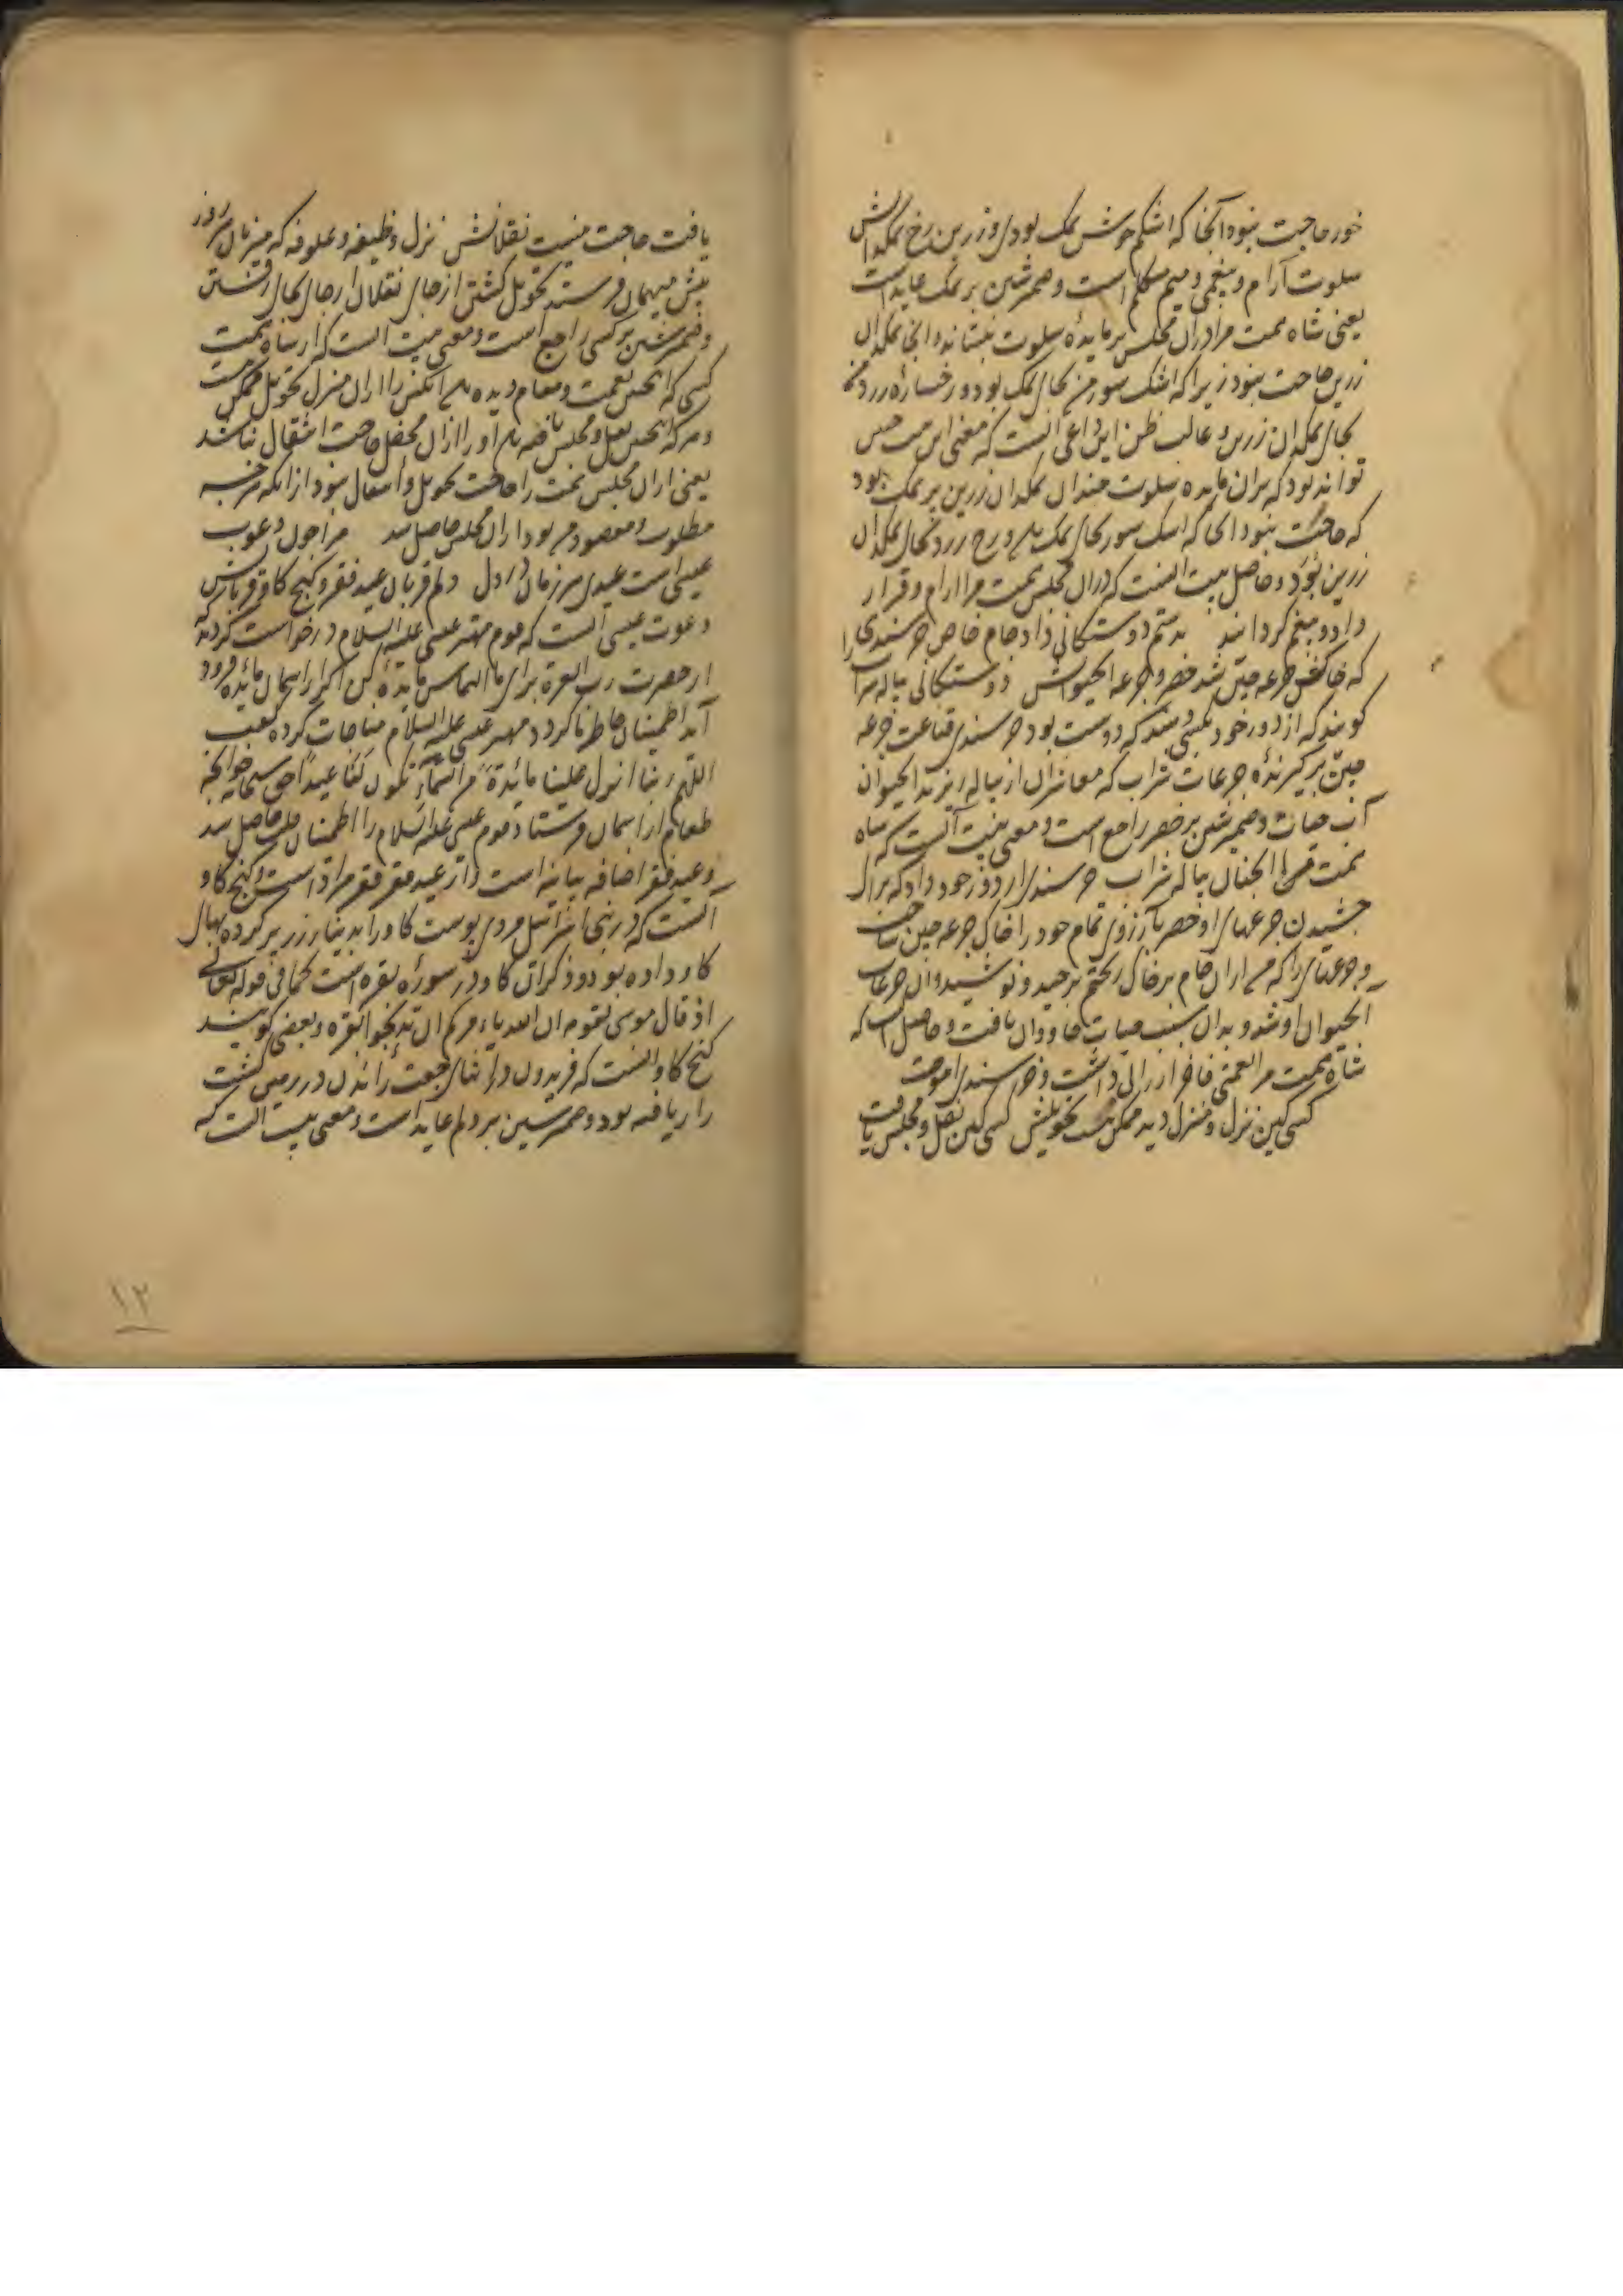 خور حاجت نبود آنجا که اشکم خوش نمک بودی و زرین رخ نمکدانش
سلوت آرام و بیغمی و میم متکلم است و ضمیر شین بر نمک عاید است
یعنی شاه همت مرا در آن مجلس بر مایده سلوت بنشاند و آنجا نمکدان
زرین حاجت نبود زیرا که اشک شور من بجای نمک بود و رخساره زرد
بجای نمکدان زرین و غالب ظن این داعی آنست که معنی این بیت چنین
تواند بود که بران مایده سلوت چندان نمکدان زرین پر نمک بود
که حاجت نبود آنجا که اشک شور بجای نمک و رخ زرد بجای نمکدان
زرین بود و حاصل بیت اینست که در آن مجلس همت مرا آرام و قرار
داد و بیغم گردانید بدستم دوستکانی داد جام خاص خرسندی
که خاک جرعه چین شد خضر و جرعه الحیوانش دوستکانی پیاله شراب
گویند که از دور خود بکسی دهند که دوست بود خرسندی قناعت جرعه
چین برگیرنده جرعات شراب که معاشران از پیاله ریزند الحیوان
آب حیات و ضمیر شین بر خضر راجع است و معنی بیت آنست که شاه
همت پیاله شراب خرسندی از دور خود داد که برای
چشیدن جرعهای او خضر بآرزوی تمام خود را خاک جرعه چین ساخت
و جرعهای را که من از آن جام بر خاک ریختم برچید و نوشید و آن جرعات
الحیوان او شد و بدان سبب حیات جاودان یافت و حاصل آنست که
شاه همت مرا نعمتی فاخر ارزانی داشت و خرسندی آموخت
کسی کین نزل و منزل دید ممکن نیست تحویلش کسی کین نقل و مجلس یافت
یافت حاجت نیست نقلانش نزل وظیفه و علوفه که میزبان هر روز
پیش میهمان فرستد تحویل گشتن از جای نقلان از جای بجای رفتن
و ضمیر شین بر کسی راجع است و معنی بیت آنست که از شاه همت
کسی که چنین نعمت و مقام دیده آنکس را از آن منزل تحویل ممکن نیست
و هر که چنین نقل و مجلس یافته او را از آن محفل حاجت انتقال نباشد
یعنی از آن مجلس همت را حاجت تحویل و انتقال نبود از آنکه هر چه
مطلوب و مقصود بود از آن مجلس حاصل شد مرا چون دعوت
عیسی است عیدی هر زمان در دل دلم قربان عید فقر و گنج گاو قربانش
دعوت عیسی آنست که قوم مهتر عیسی علیه السلام درخواست کردند که
از حضرت رب العزة برای ما التماس مایده کن اگر از آسمان مائده فرود
آید اطمینان خاطر ما گردد مهتر عیسی علیه السلام مناجات کرده گفت
اللهم ربنا انزل علینا مائدة من السماء تکون لنا عیدا حق سبحانه خوانچه
طعام از آسمان فرستاد قوم عیسی علیه السلام را اطمینان قلب حاصل شد
و عید فقر اضافه بیانیه است و از عید فقر فقر مراد است و گنج گاو
آنست که در بنی اسرائیل مردی پوست گاو را به دینار زر پر کرده بهای
گاو داده بود و ذکر آن گاو در سوره بقره است کما فی قوله تعالی
اذ قال موسی لقومه ان الله یامرکم ان تذبحوا بقره و بعضی گویند
گنج گاو آنست که فریدون در راندن در زمین کشت
را یافته بود و ضمیر شین بر دلم عاید است و معنی بیت آنست که
۱۲